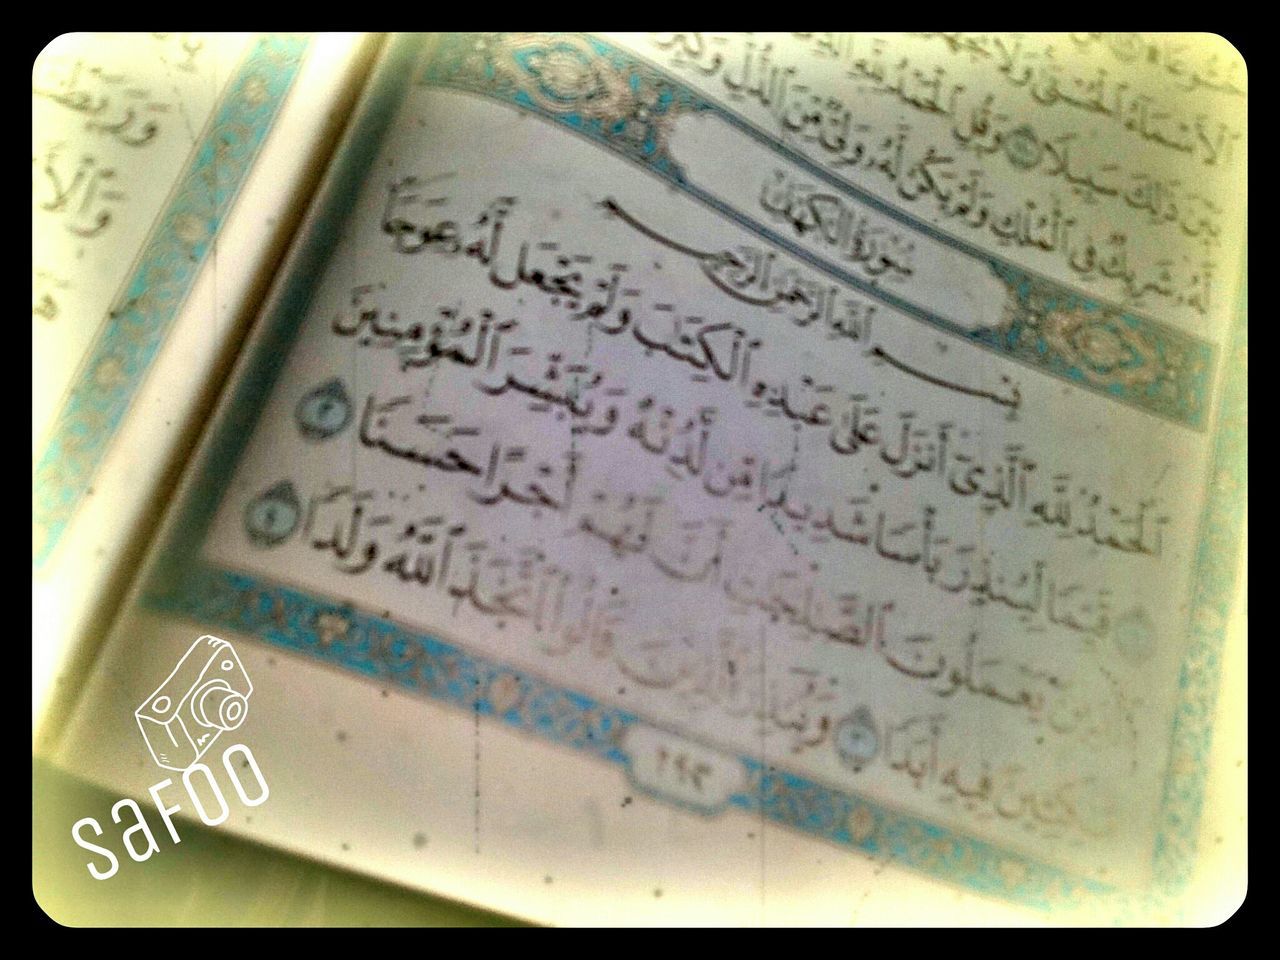 ٱلْأَسْمَآءُ ٱلْحُسْنَىٰ وَلَا تَجْهَرْ
بَيْنَ ذَٰلِكَ سَبِيلًا ١١٠ وَقُلِ ٱلْحَمْدُ لِلَّهِ ٱلَّذِى
لَّهُۥ شَرِيكٌ فِى ٱلْمُلْكِ وَلَمْ يَكُن لَّهُۥ وَلِىٌّ مِّنَ ٱلذُّلِّ وَكَبِّرْهُ
سُورَةُ الكَهْفِ
بِسْمِ ٱللَّهِ ٱلرَّحْمَٰنِ ٱلرَّحِيمِ
ٱلْحَمْدُ لِلَّهِ ٱلَّذِىٓ أَنزَلَ عَلَىٰ عَبْدِهِ ٱلْكِتَٰبَ وَلَمْ يَجْعَل لَّهُۥ عِوَجَا
١ قَيِّمًا لِّيُنذِرَ بَأْسًا شَدِيدًا مِّن لَّدُنْهُ وَيُبَشِّرَ ٱلْمُؤْمِنِينَ
ٱلَّذِينَ يَعْمَلُونَ ٱلصَّٰلِحَٰتِ أَنَّ لَهُمْ أَجْرًا حَسَنًا ٢
مَّٰكِثِينَ فِيهِ أَبَدًا ٣ وَيُنذِرَ ٱلَّذِينَ قَالُوا۟ ٱتَّخَذَ ٱللَّهُ وَلَدًا ٤
٢٩٣
saFoo